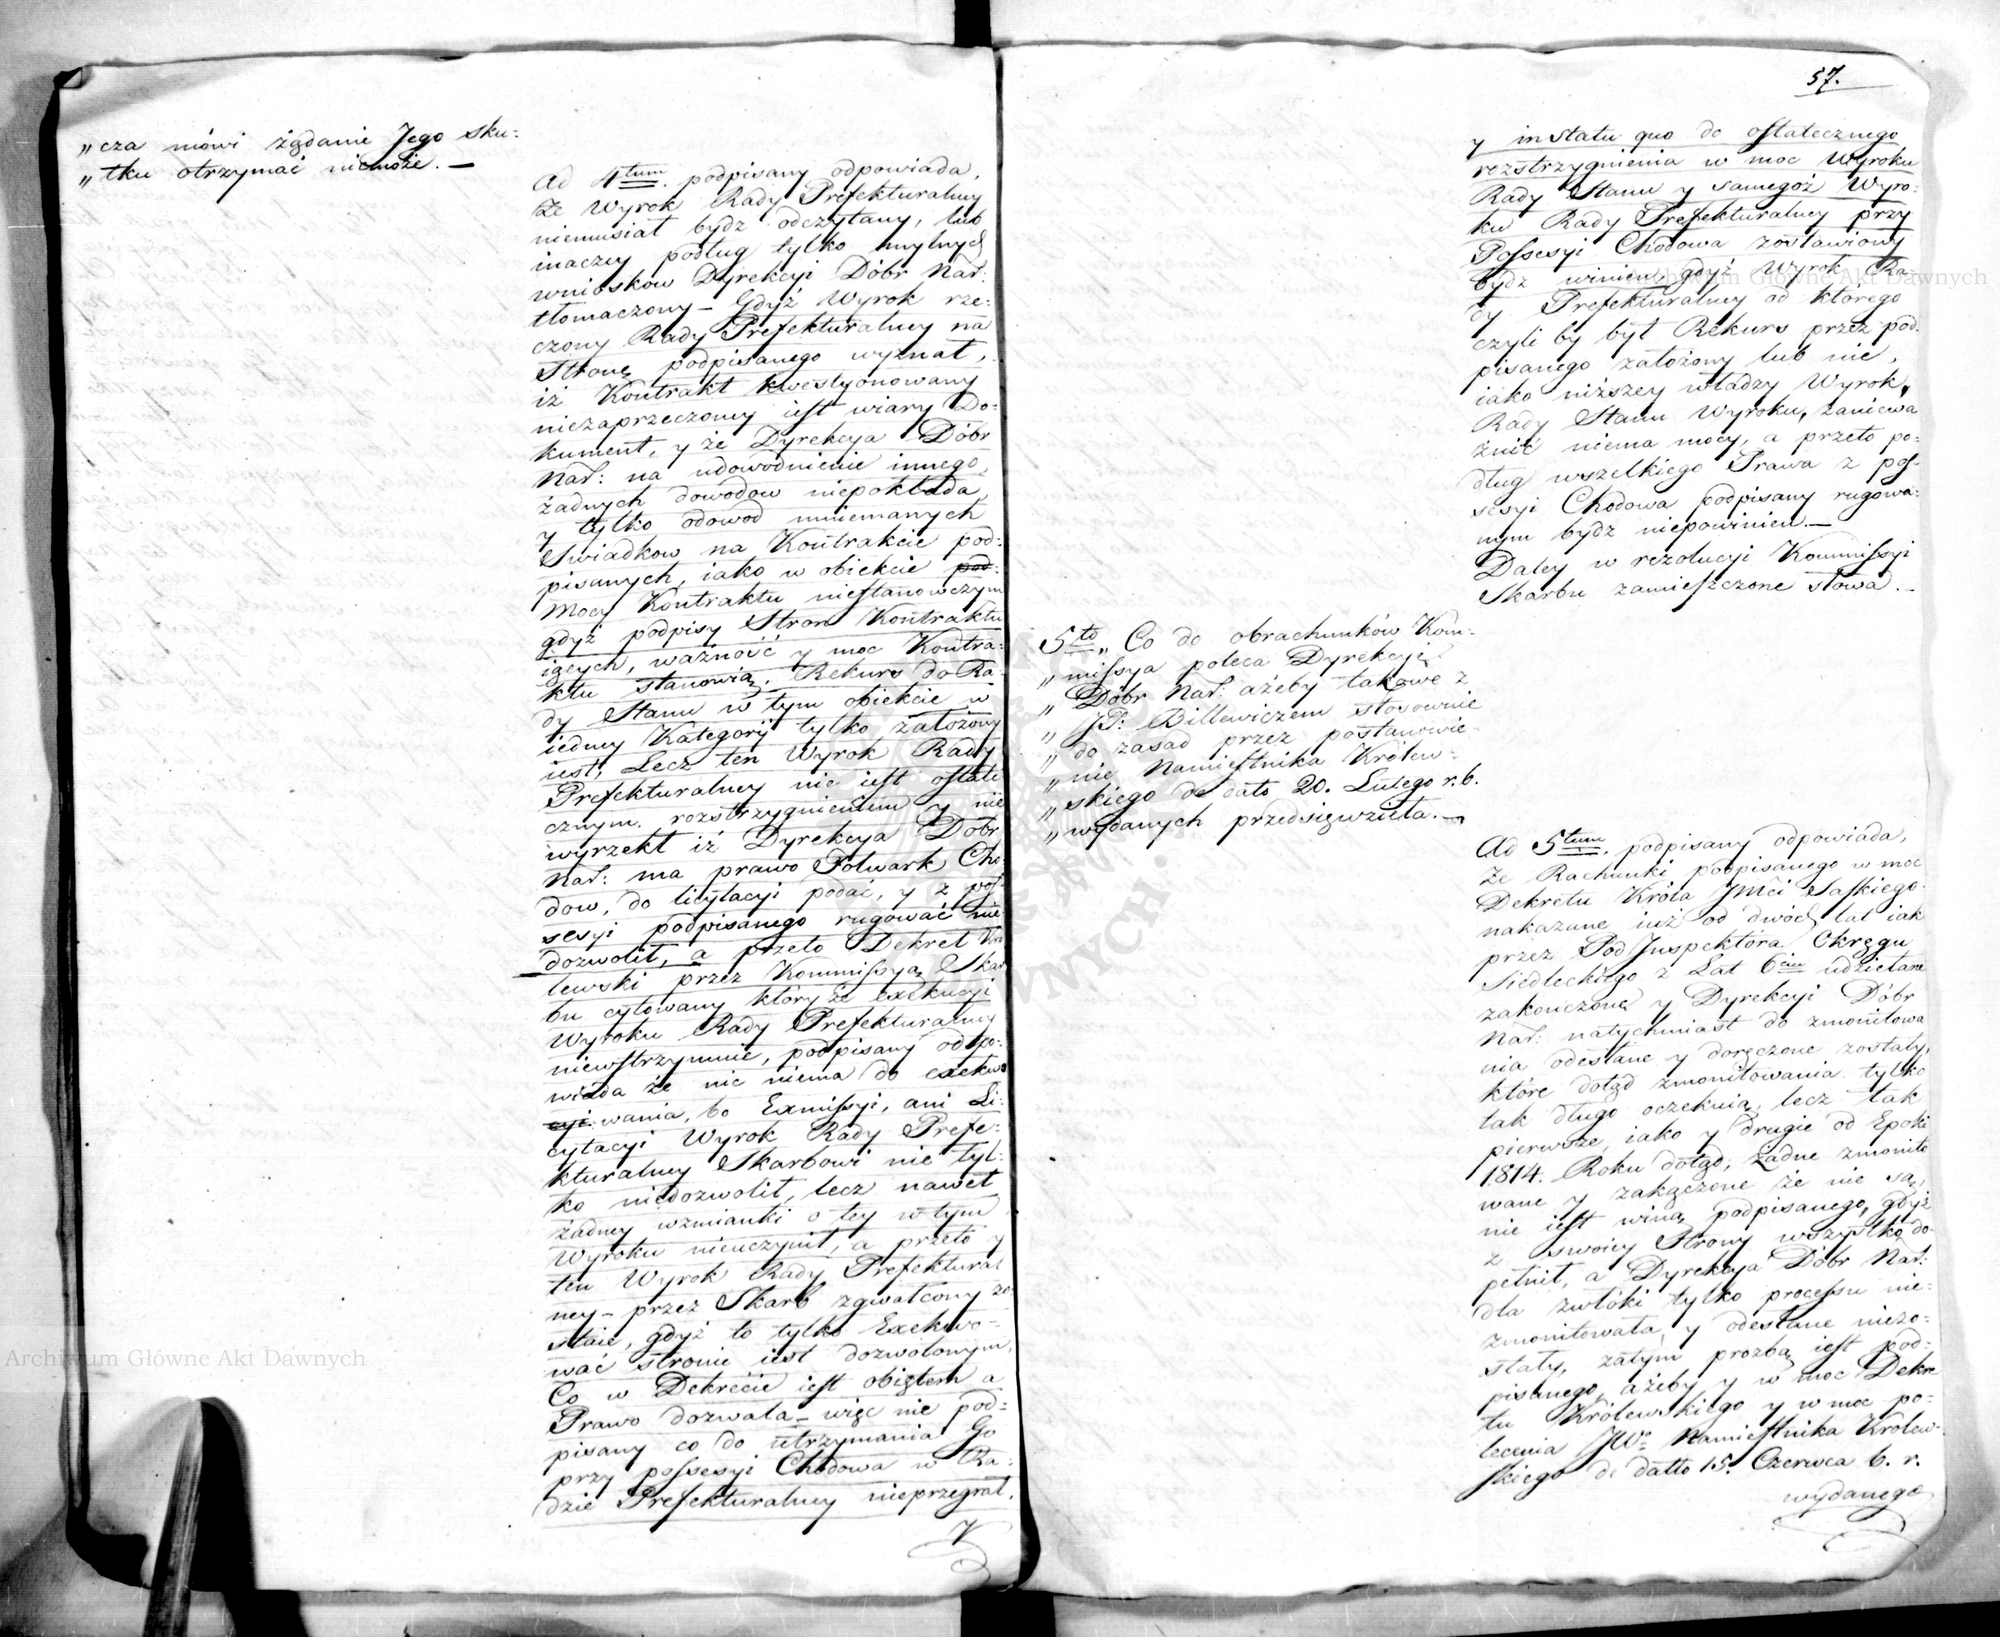 „cza mówi żądanie Jego sku:
„tku otrzymać niemoże. —
Ad 4tum. podpisany odpowiada,
że Wyrok Rady Prefekturalney
niemusiał bydz odczytany, lub
inaczey podług tylko mylnych
wniosków Dyrekcyi Dóbr Nar:
tłomaczony — Gdyż Wyrok rze:
czony Rady Prefekturalney na
Stronę podpisanego wyznał,
iż Kontrakt kwestyonowany
niezaprzeczoney iest wiary Do:
kument, y że Dyrekcya Dóbr
Nar: na udowodnienie innego
żadnych dowodow niepokłada
y tylko odowod mniemanych
Swiadkow na Kontrakcie pod:
pisanych, iako w obiekcie pod:
Mocy Kontraktu niestanowczym
gdyż podpisy Stron Kontraktu
iących, ważność y moc Kontra:
ktu stanowią. Rekurs do Ra:
dy Stanu w tym obiekcie w
iedney Kategoryi tylko założony
iest, Lecz ten Wyrok Rady
Prefekturalney nie iest ostate
cznym rozstrzygnieniem y nie
wyrzekł iż Dyrekcya Dóbr
Nar: ma prawo Folwark Cho:
dow, do licytacyi podać, y z pos:
sesyi podpisanego rugować nie
dozwolił, a przeto Dekret Kró
lewski przez Kommissyą Skar
bu cytowany który że exekucyi
Wyroku Rady Prefekturalney
niewstrzymuie, podpisany odpo:
wiada że nic niema do exekwo
cyi wania, bo Exmissyi, ani Li:
cytacyi Wyrok Rady Prefe:
kturalney Skarbowi nie tyl:
ko niedozwolił, lecz nawet
żadney wzmianki o tey w tym
Wyroku nieuczynił, a przeto y
ten Wyrok Rady Prefektural
ney — przez Skarb zgwałcony zo:
staie, gdyż to tylko Exekwo-
wać stronie iest dozwolonym,
Co w Dekrecie iest obiętem a
Prawo dozwala — więc nie pod:
pisany co do utrzymania Go
przy possesyi Chodowa w Ra:
dzie Prefekturalney nieprzegrał,
57.
y in statu quo do ostatecznego
rozstrzygnienia w moc Wyroku
Rady Stanu y samegoż Wyro:
ku Rady Prefekturalney przy
Possesyi Chodowa zostawiony
bydz winien, gdyż Wyrok Ra:
dy Prefekturalney od którego
czyli by był Rekurs przez pod:
pisanego założony lub nie,
iako niższey władzy Wyrok,
Rady Stanu Wyroku, zaniewa
żnić niema mocy, a przeto po:
dług wszelkiego Prawa z pos:
sesyi Chodowa podpisany rugowa:
nym bydz niepowinien. —
Daley w rezolucyi Kommissyi
Skarbu zamieszczone słowa. —
5to „Co do obrachunków Kom:
„missya poleca Dyrekcyi
„Dóbr Nar: ażeby takowe z
„JP: Billewiczem stosownie
„do zasad przez postanowie-
„nie Namiestnika Królew-
„skiego de dato 20. Lutego r. b.
„wydanych przedsięwzięła. —
Ad 5tum, podpisany odpowiada,
że Rachunki podpisanego w moc
Dekretu Króla JMci Saskiego
nakazane iuż od dwóch lat iak
przez Pod Inspektora Okręgu
Siedleckiego z Lat 6ciu udziełane
zakończone y Dyrekcyi Dóbr
Nar: natychmiast do zmonitowa
nia odesłane y doręczone zostały,
które dotąd zmonitowania tylko
tak długo oczekuią, lecz tak
pierwsze, iako y drugie od Epoki
1814. Roku dotąd, żadne zmonito
wane y zakączone że nie są,
nie iest winą podpisanego, gdyż
z swoiey Strony wszystko do-
pełnił, a Dyrekcya Dóbr Nar:
dla zwłoki tylko processu nie:
zmonitowała, y odesłane niezo:
stały, zatym prozbą iest pod:
pisanego, ażeby y w moc Dekre
tu Królewskiego y w moc po-
lecenia JWo Namiestnika Królew-
skiego de datto 15. Czerwca b. r.
wydanego
Archiwum Główne Akt Dawnych
Archiwum Główne Akt Dawnych